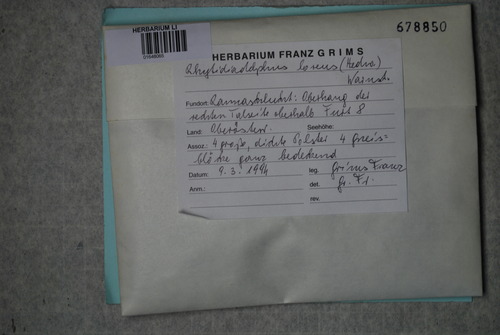 HERBARIUM LI
678850
HERBARIUM FRANZ GRIMS
Rhytidiadelphus loreus (Hedw.)
Warnst.
Fundort: Rannaschlucht: Oberhang der
rechten Talseite oberhalb
Land: Oberösterr. Seehöhe:
Assoz.: 4 große, dichte Polster 4 Gneis=
blöcke ganz bedeckend
Datum: 9.3.1994 leg. Grims Franz
Anm.: det. Gr. Fr.
rev.